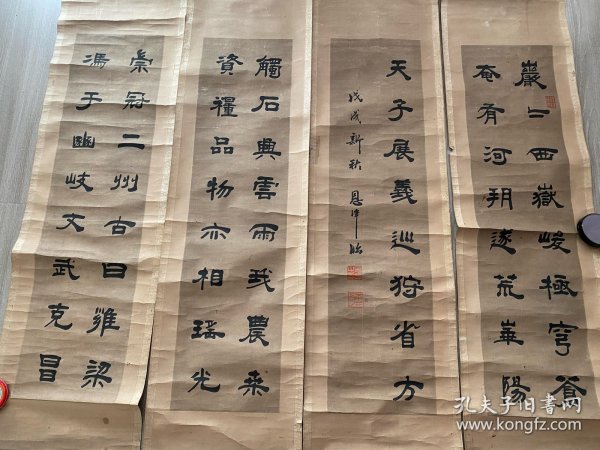 巖〻西嶽峻極穹蒼
奄有河朔遂荒華陽
天子展義巡狩省方
戊戌新秋
觸石興雲雨我農桒
資糧品物亦相瑤光
崇冠二州古曰雍梁
馮于豳岐文武克昌
孔夫子旧书网
www.kongfz.com